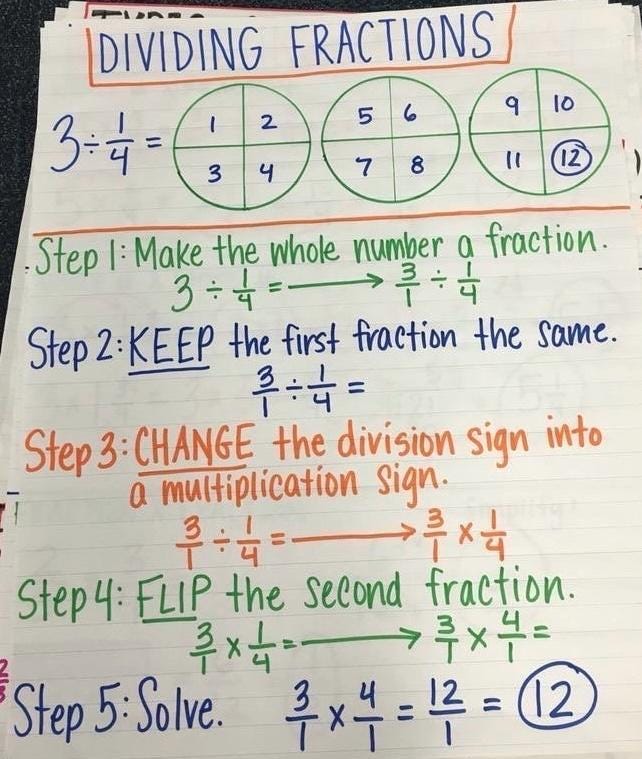 DIVIDING FRACTIONS
3 ÷ 1/4 =
1 2 5 6 9 10
3 4 7 8 11 12
Step 1: Make the whole number a fraction.
3 ÷ 1/4 = → 3/1 ÷ 1/4
Step 2: KEEP the first fraction the same.
3/1 ÷ 1/4 =
Step 3: CHANGE the division sign into
a multiplication sign.
3/1 ÷ 1/4 = → 3/1 × 1/4
Step 4: FLIP the second fraction.
3/1 × 1/4 = → 3/1 × 4/1 =
Step 5: Solve. 3/1 × 4/1 = 12/1 = 12